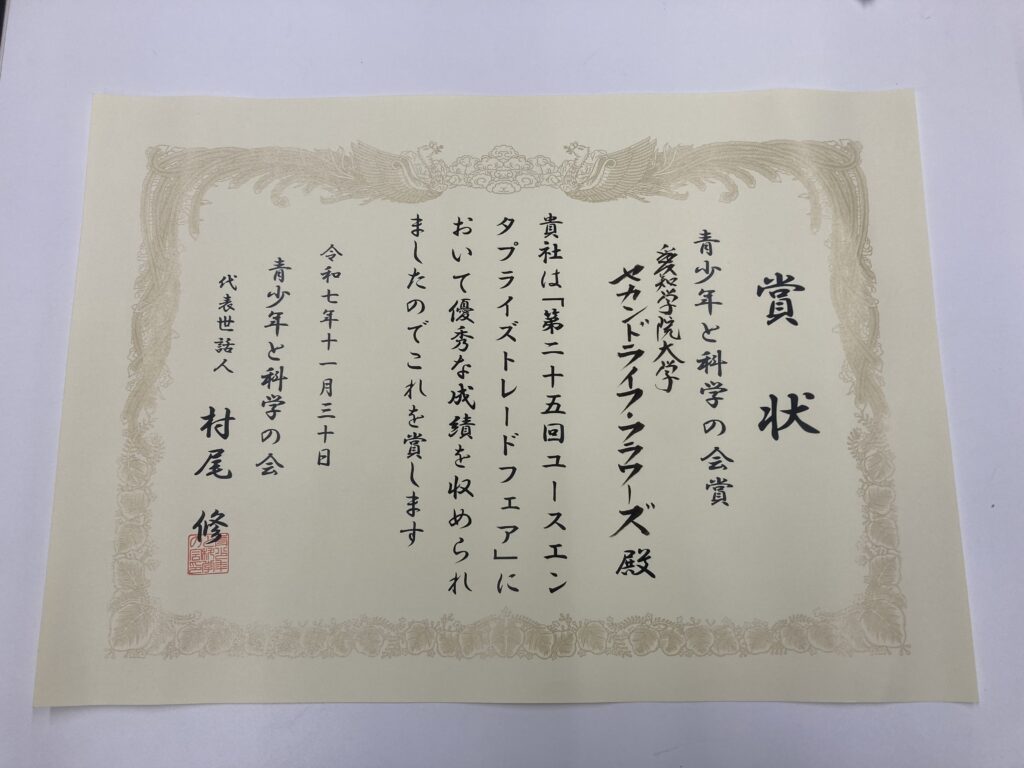 賞状
青少年と科学の会賞
愛知学院大学
セカンドライフ・フラワーズ 殿
貴社は「第二十五回ユースエン
タプライズトレードフェア」に
おいて優秀な成績を収められ
ましたのでこれを賞します
令和七年十一月三十日
青少年と科学の会
代表世話人 村尾 修